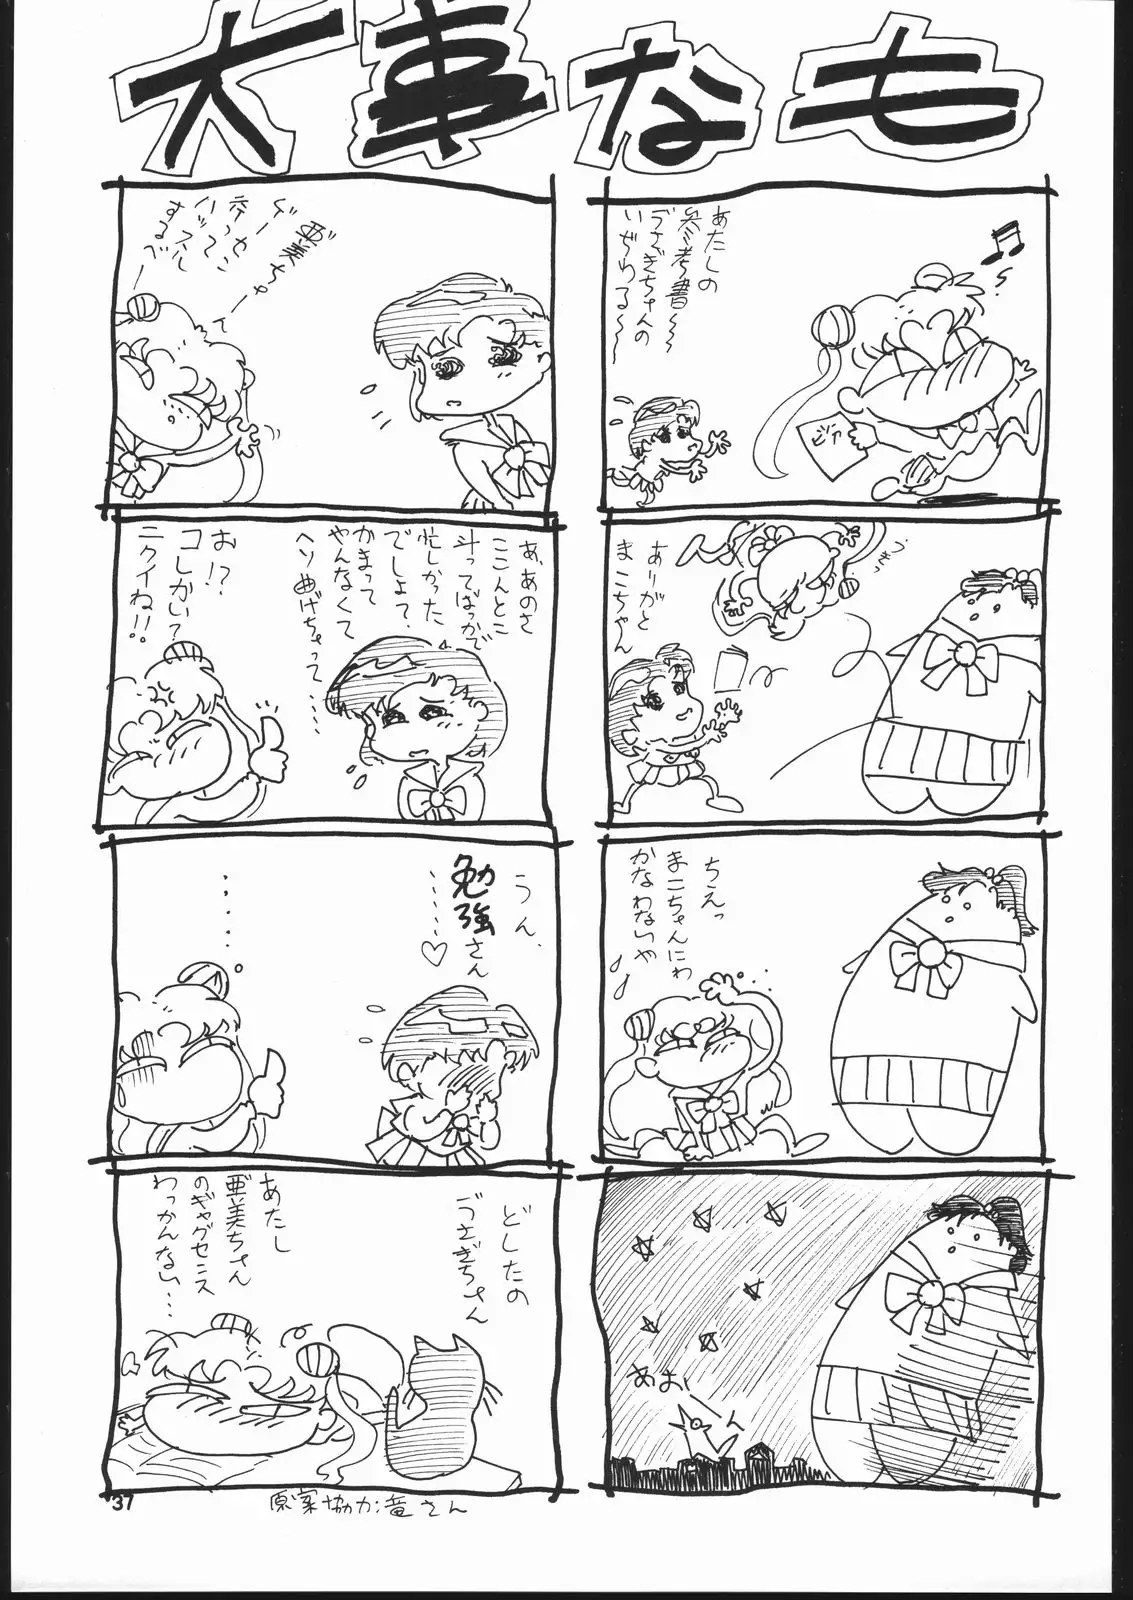 大事なも
あたしの
参考書〜
うさぎちゃんの
いぢわる〜
ありがと
まこちゃん
ちえっ
まこちゃんにわ
かなわないや
亜美ちゃー
ゲーセン
行って
ハッスル
するべー
あ、あのさ
ここんとこ
斗ってばっかで
忙しかった
でしょて?
かまって
やんなくて
ヘソ曲げちゃって・・・・
お!?
コレかい?
ニクイね!!
うん、
勉強さん
・・・・・♡
・・・・・
どしたの
うさぎちゃん
あたし
亜美ちゃん
のギャグセンス
わっかんない・・・
37
原案協力:竜さん